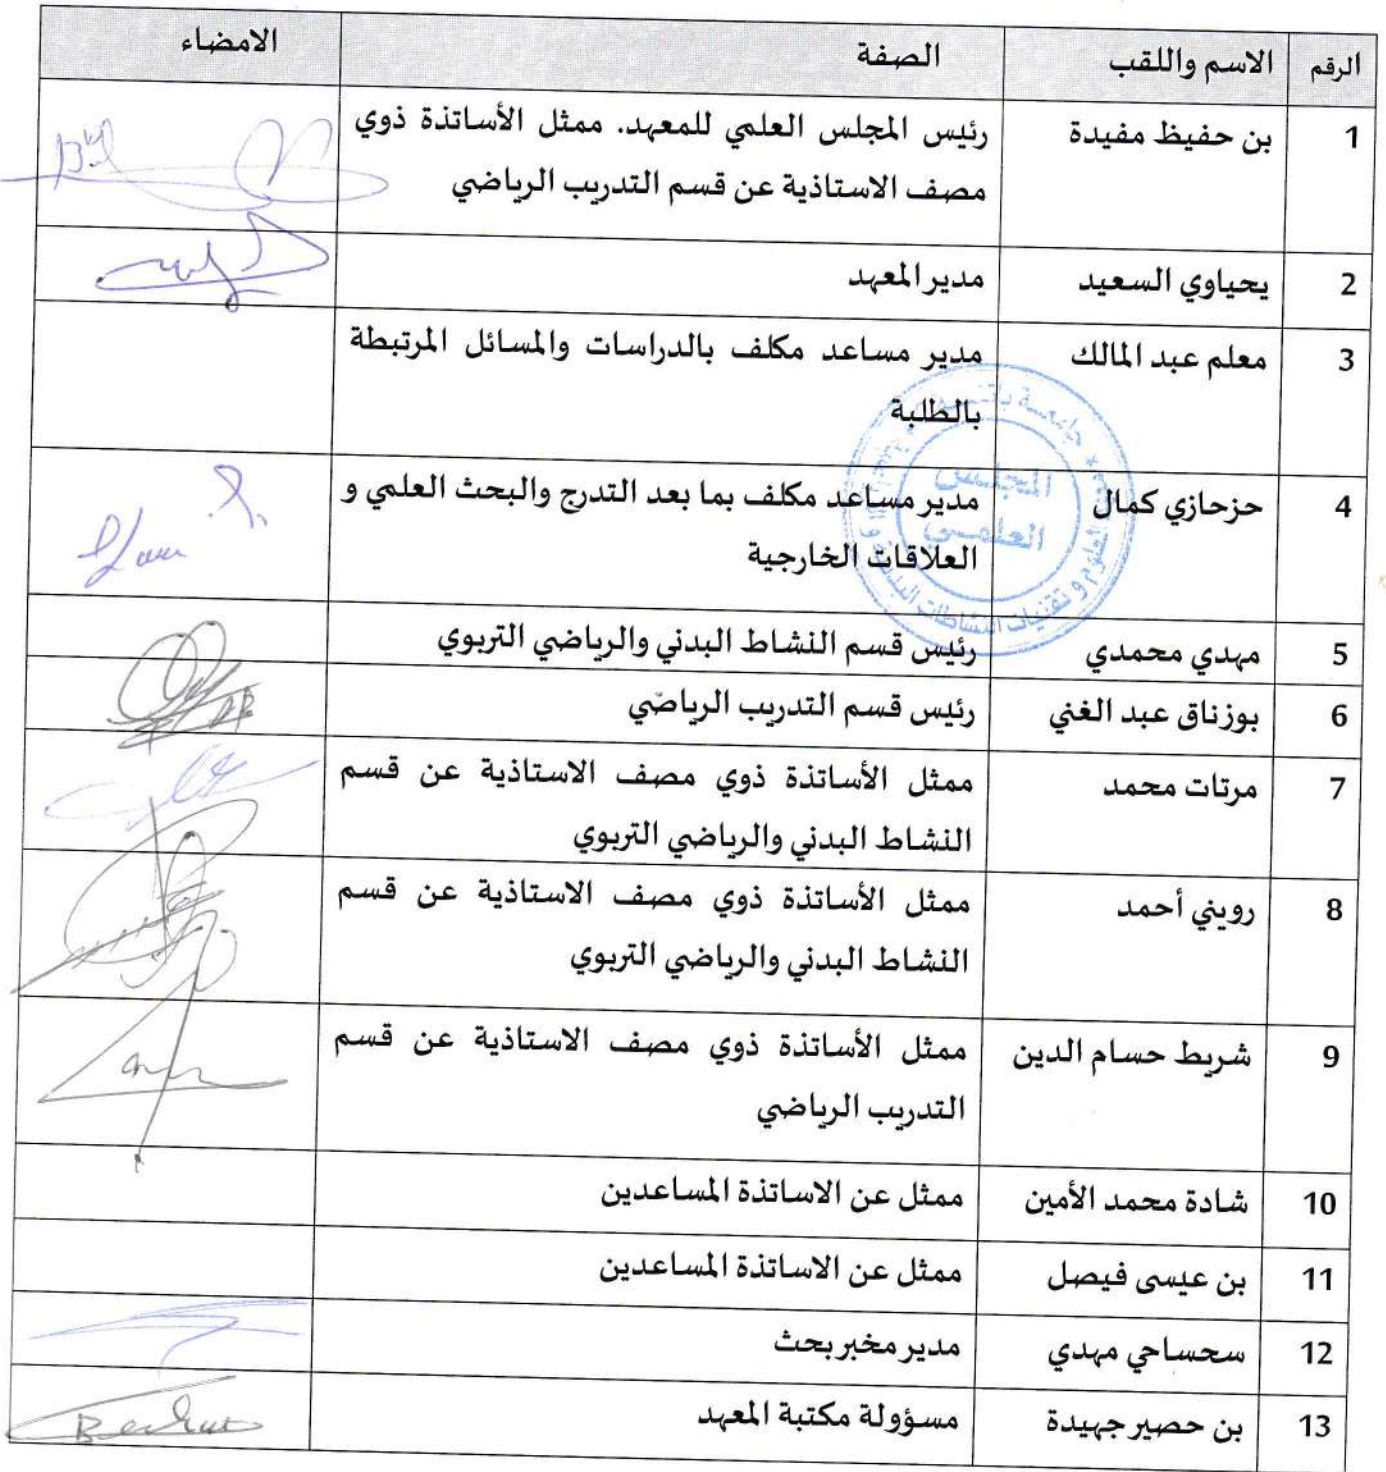 الرقم الاسم واللقب الصفة الامضاء
1 بن حفيظ مفيدة رئيس المجلس العلمي للمعهد. ممثل الأساتذة ذوي
مصف الاستاذية عن قسم التدريب الرياضي
2 يحياوي السعيد مدير المعهد
3 معلم عبد المالك مدير مساعد مكلف بالدراسات والمسائل المرتبطة
بالطلبة
4 حزحازي كمال مدير مساعد مكلف بما بعد التدرج والبحث العلمي و
العلاقات الخارجية
5 مهدي محمدي رئيس قسم النشاط البدني والرياضي التربوي
6 بوزناق عبد الغني رئيس قسم التدريب الرياضي
7 مرتات محمد ممثل الأساتذة ذوي مصف الاستاذية عن قسم
النشاط البدني والرياضي التربوي
8 رويني أحمد ممثل الأساتذة ذوي مصف الاستاذية عن قسم
النشاط البدني والرياضي التربوي
9 شريط حسام الدين ممثل الأساتذة ذوي مصف الاستاذية عن قسم
التدريب الرياضي
10 شادة محمد الأمين ممثل عن الاساتذة المساعدين
11 بن عيسى فيصل ممثل عن الاساتذة المساعدين
12 سحساحي مهدي مدير مخبر بحث
13 بن حصير جهيدة مسؤولة مكتبة المعهد
المجلس
العلمي